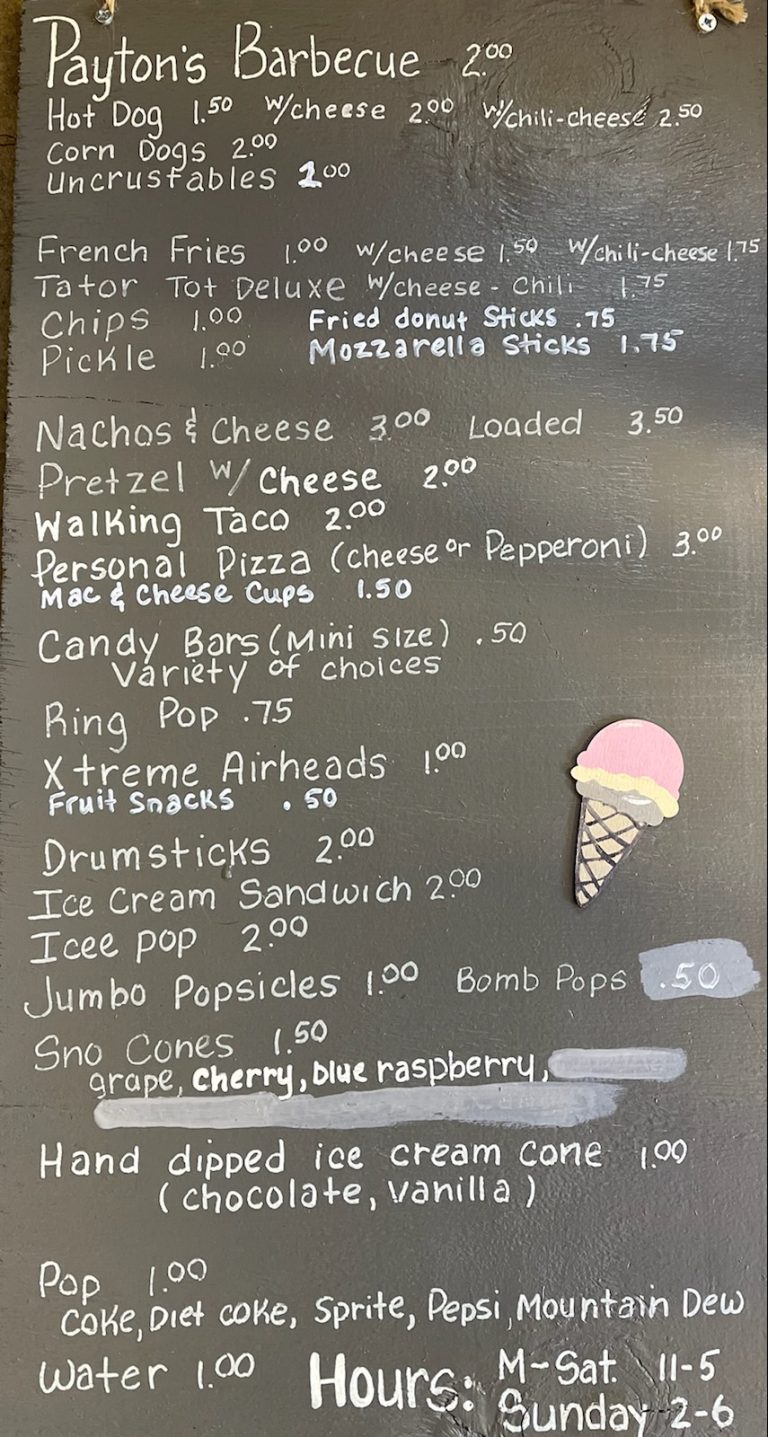 Payton's Barbecue 2.00
Hot Dog 1.50 w/cheese 2.00 w/chili-cheese 2.50
Corn Dogs 2.00
Uncrustables 2.00
French Fries 1.00 w/cheese 1.50 w/chili-cheese 1.75
Tator Tot Deluxe w/cheese - Chili 1.75
Chips 1.00 Fried donut Sticks .75
Pickle 1.00 Mozzarella Sticks 1.75
Nachos & Cheese 3.00 Loaded 3.50
Pretzel w/ Cheese 2.00
Walking Taco 2.00
Personal Pizza (cheese or Pepperoni) 3.00
Mac & Cheese Cups 1.50
Candy Bars (Mini size) .50
Variety of choices
Ring Pop .75
Xtreme Airheads 1.00
Fruit Snacks .50
Drumsticks 2.00
Ice Cream Sandwich 2.00
Icee pop 2.00
Jumbo Popsicles 1.00 Bomb Pops .50
Sno Cones 1.50
grape, cherry, blue raspberry,
Hand dipped ice cream cone 1.00
(chocolate, vanilla)
Pop 1.00
Coke, Diet coke, Sprite, Pepsi, Mountain Dew
Water 1.00 Hours: M-Sat. 11-5
Sunday 2-6